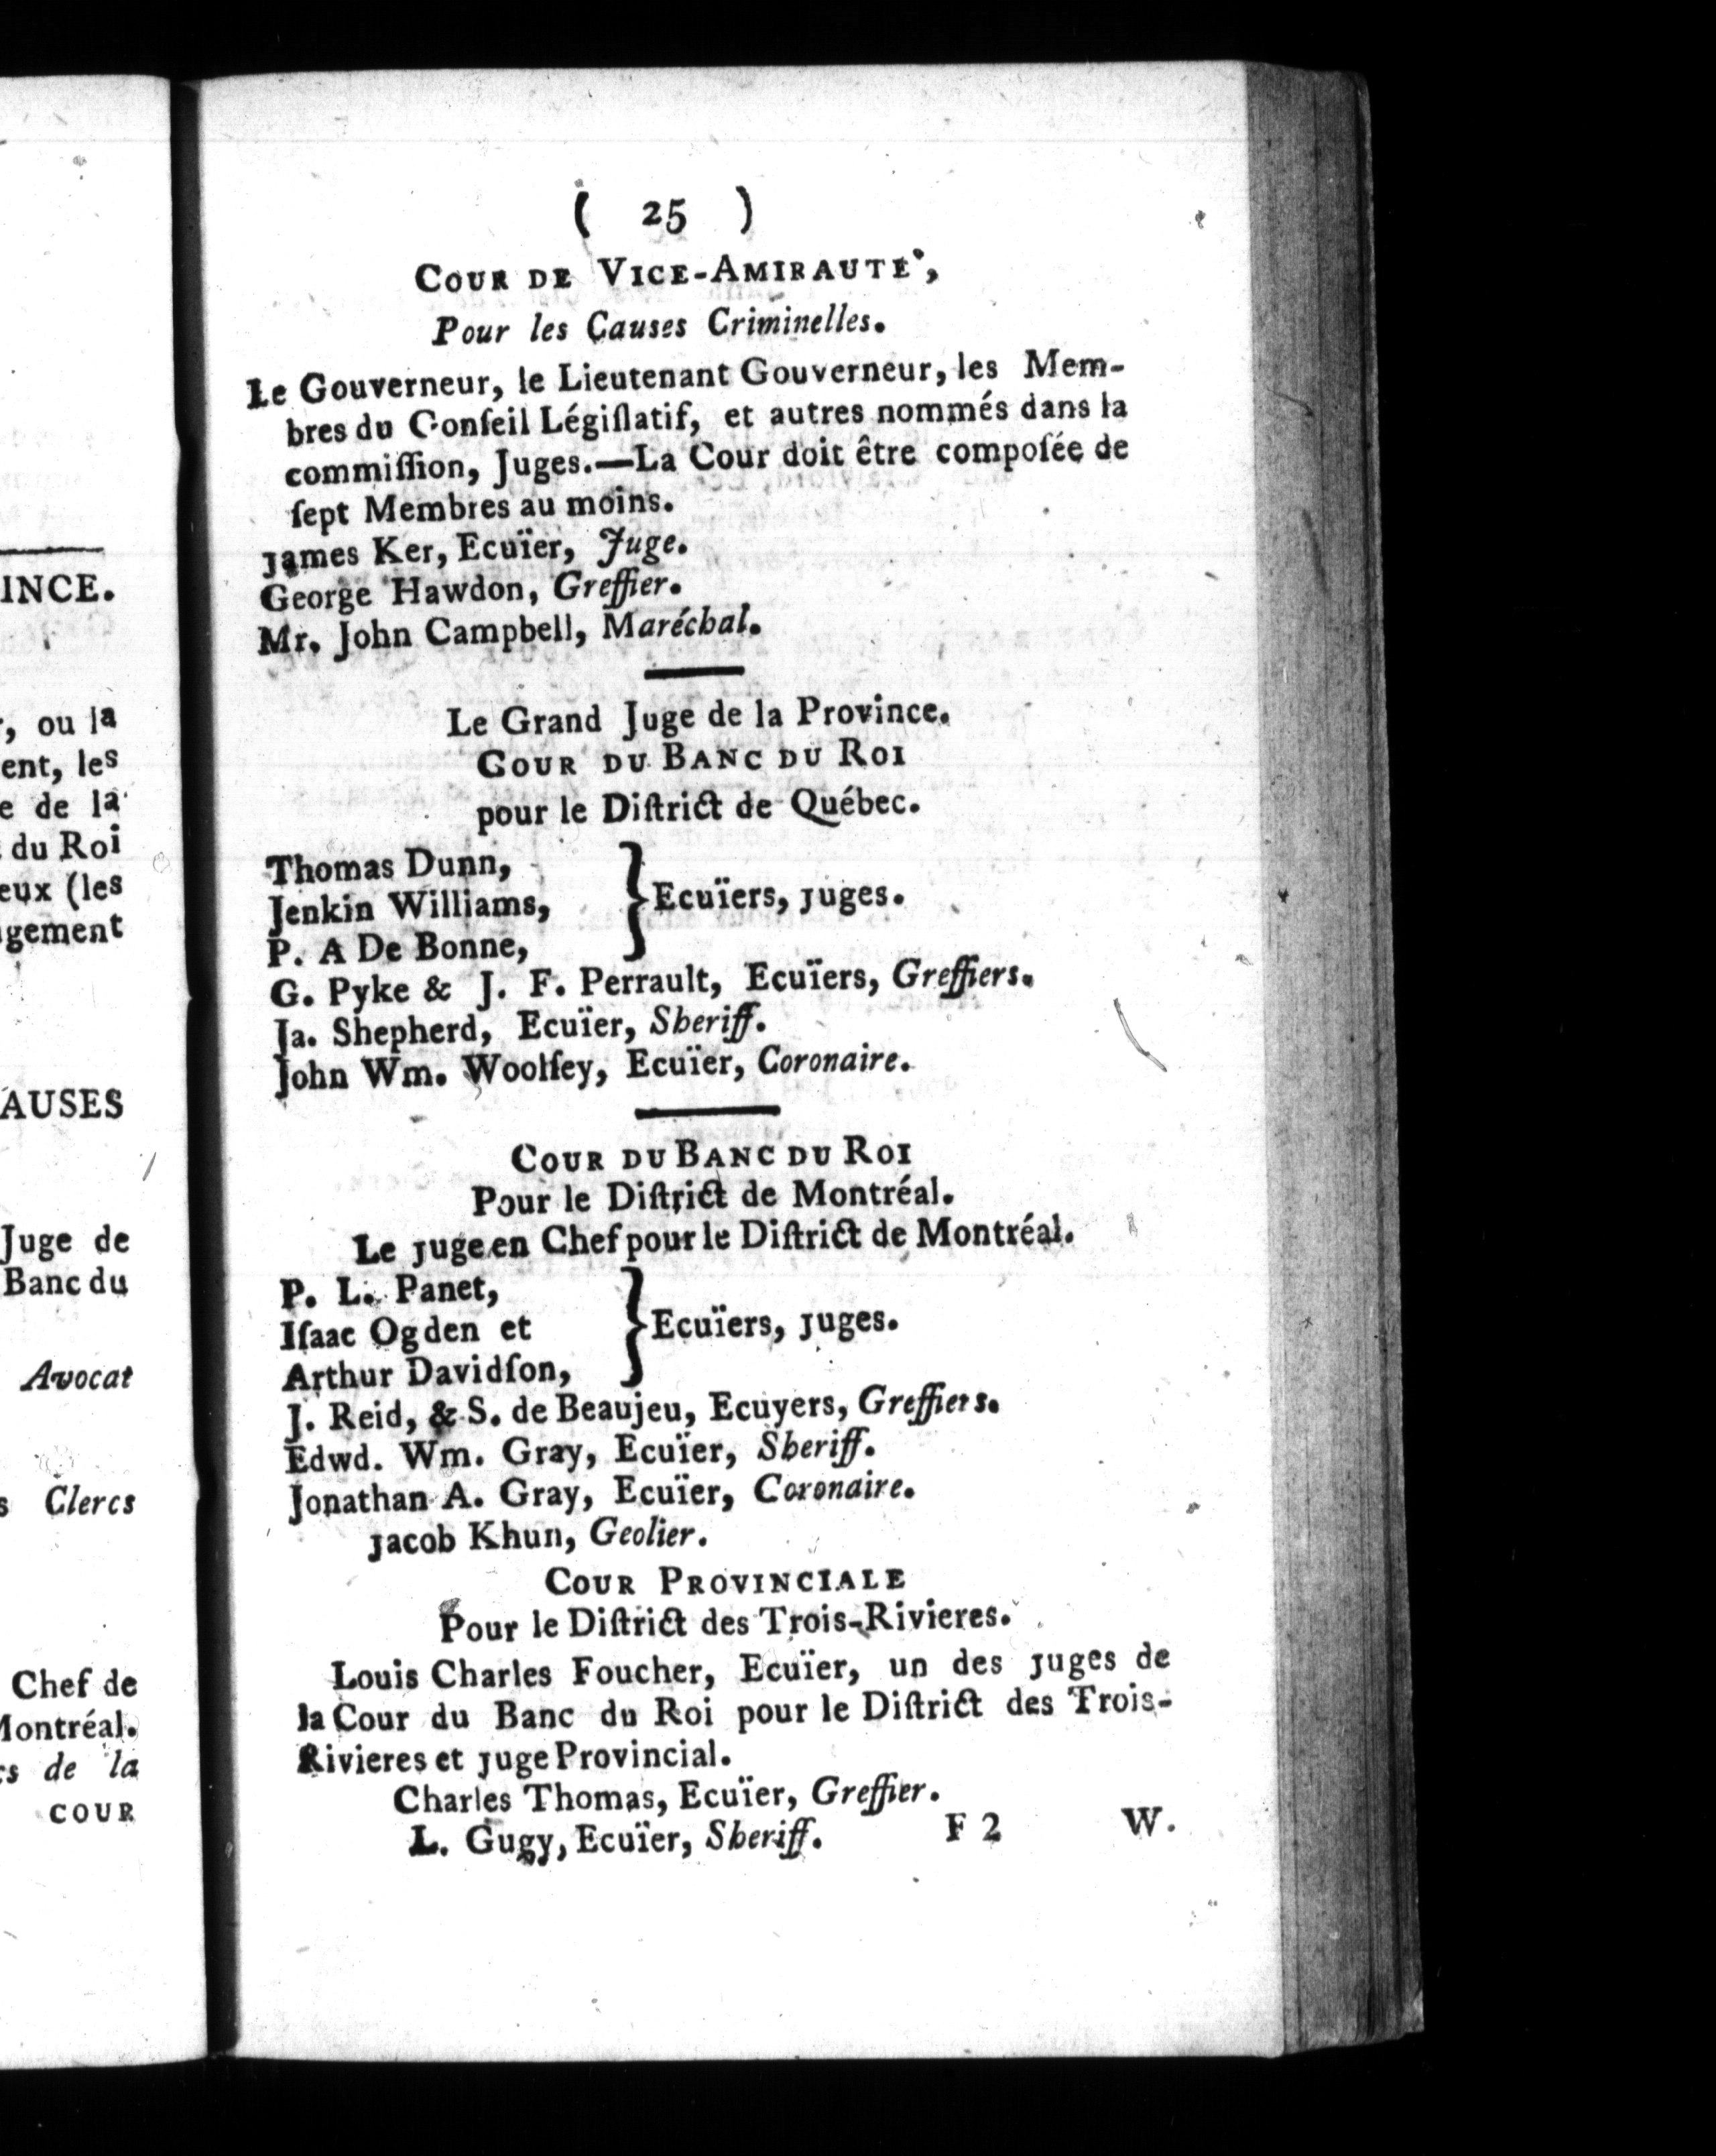 INCE.
, ou la
ent, les
e de la
du Roi
eux (les
gement
AUSES
Juge de
Banc du
Avocat
s Clercs
Chef de
Montréal.
s de la
COUR
( 25 )
COUR DE VICE-AMIRAUTE',
Pour les Causes Criminelles.
Le Gouverneur, le Lieutenant Gouverneur, les Mem-
bres du Conſeil Légiſlatif, et autres nommés dans la
commiſſion, Juges.—La Cour doit être compoſée de
ſept Membres au moins.
James Ker, Ecuïer, Juge.
George Hawdon, Greffier.
Mr. John Campbell, Maréchal.
Le Grand Juge de la Province.
COUR DU BANC DU ROI
pour le Diſtrict de Québec.
Thomas Dunn,
Jenkin Williams,
P. A De Bonne,
} Ecuïers, Juges.
G. Pyke & J. F. Perrault, Ecuïers, Greffiers.
Ja. Shepherd, Ecuïer, Sheriff.
John Wm. Woolſey, Ecuïer, Coronaire.
COUR DU BANC DU ROI
Pour le Diſtrict de Montréal.
Le Juge en Chef pour le Diſtrict de Montréal.
P. L. Panet,
Iſaac Ogden et
Arthur Davidſon,
} Ecuïers, Juges.
J. Reid, & S. de Beaujeu, Ecuyers, Greffiers.
Edwd. Wm. Gray, Ecuïer, Sheriff.
Jonathan A. Gray, Ecuïer, Coronaire.
Jacob Khun, Geolier.
COUR PROVINCIALE
Pour le Diſtrict des Trois-Rivieres.
Louis Charles Foucher, Ecuïer, un des Juges de
la Cour du Banc du Roi pour le Diſtrict des Trois-
Rivieres et Juge Provincial.
Charles Thomas, Ecuïer, Greffier.
L. Gugy, Ecuïer, Sheriff. F 2 W.